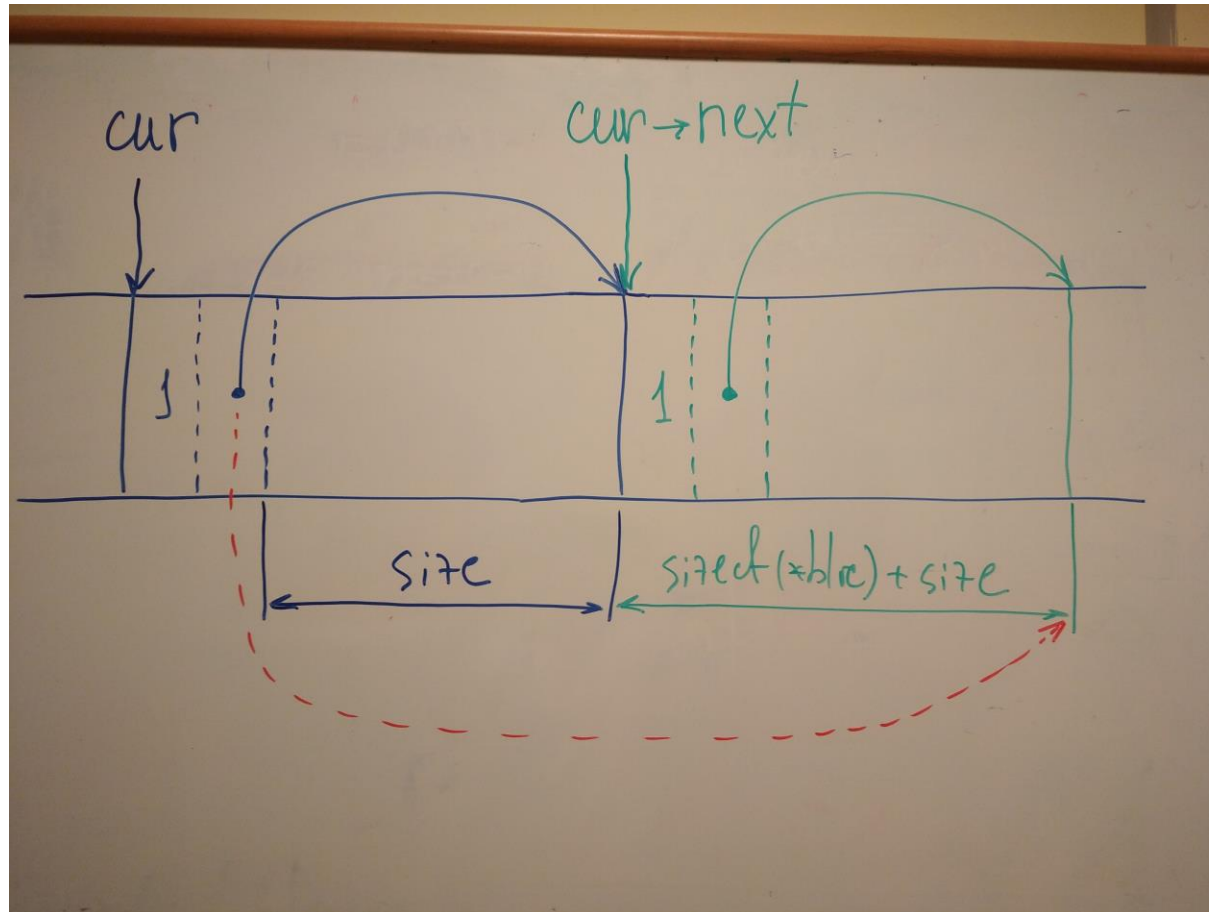 cur
cur→next
1
1
size
sizeof(*bloc) + size